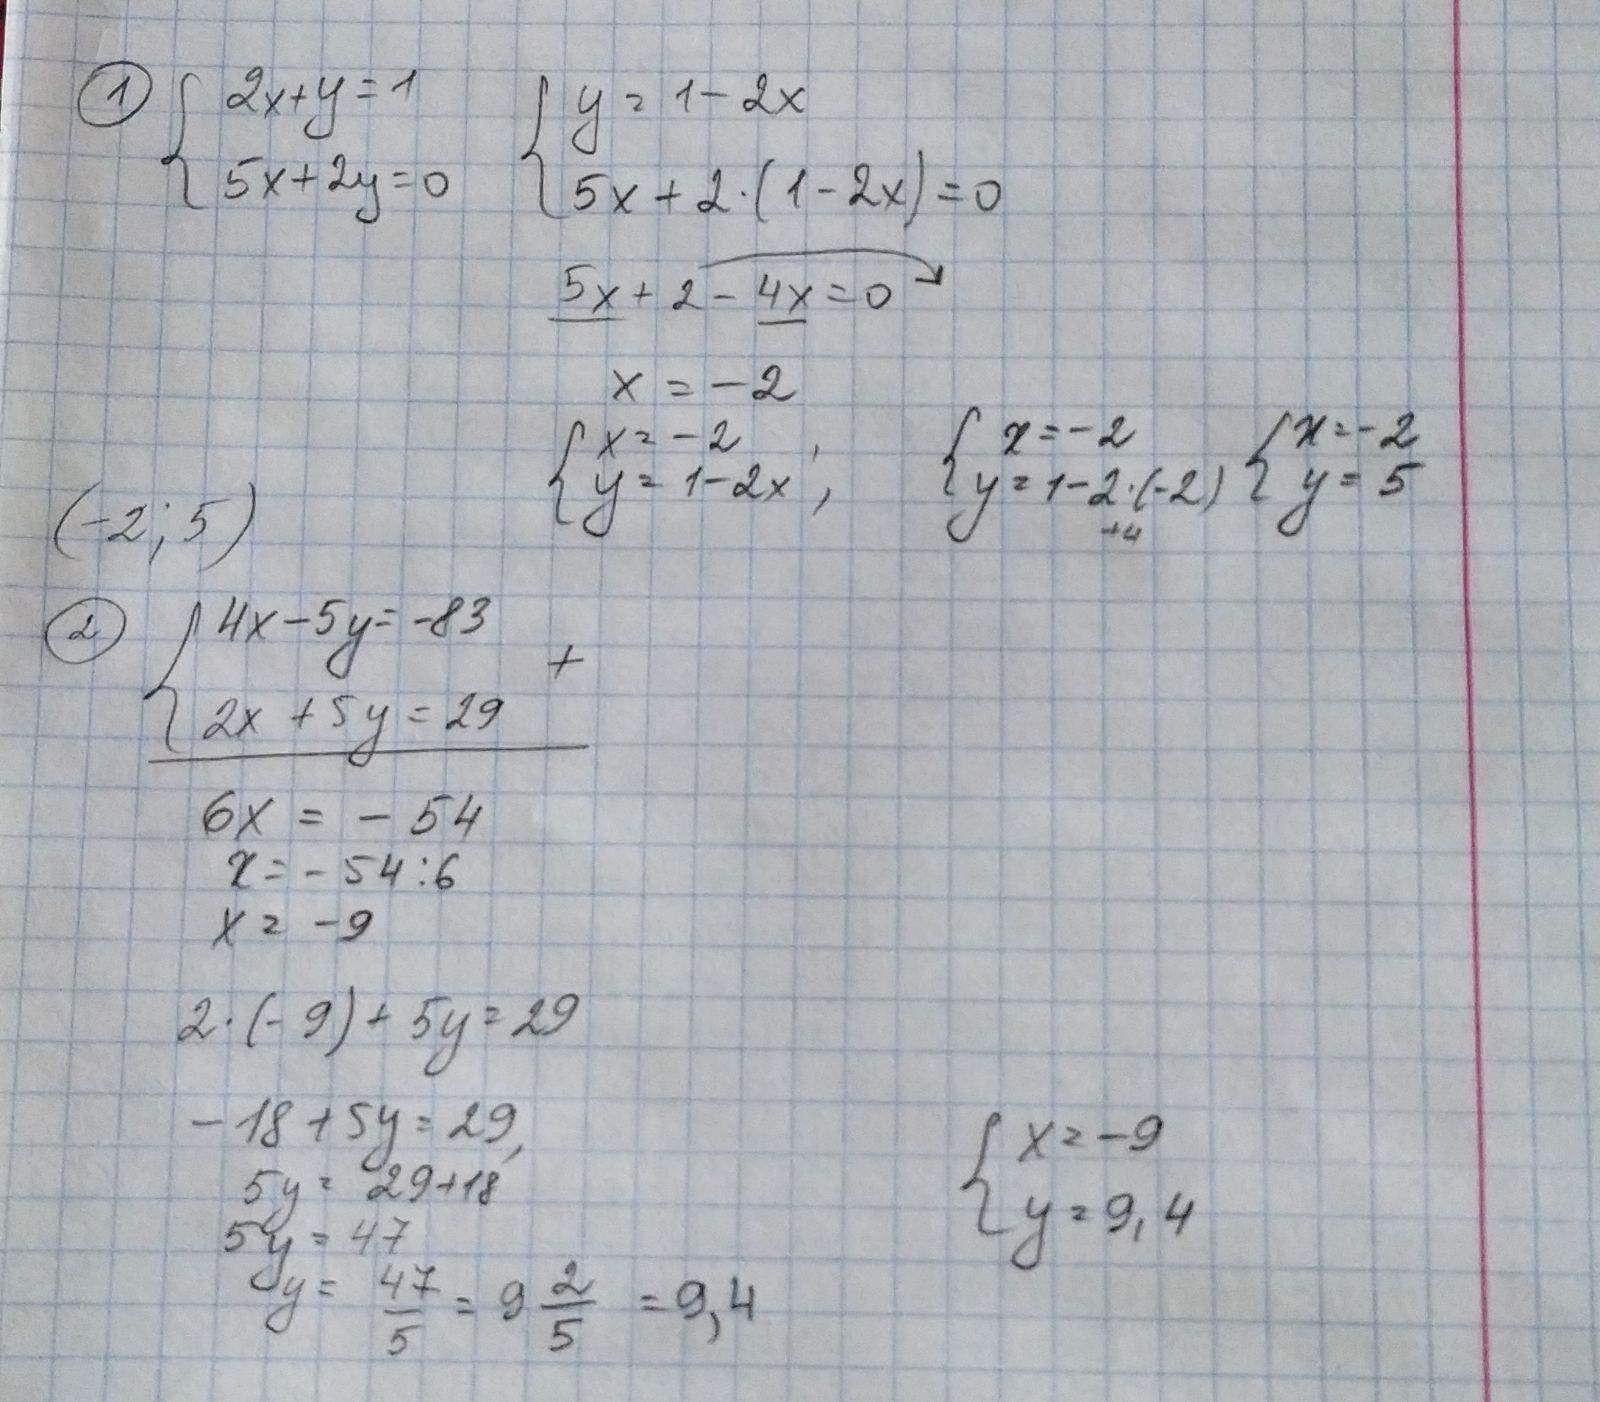 ① { 2x+y=1 { y = 1-2x
5x+2y=0 5x+2·(1-2x)=0
5x+2-4x=0
x = -2
{ x=-2 , { x=-2 { x=-2
y=1-2x ; y=1-2·(-2) y=5
+4
(-2;5)
② { 4x-5y=-83
+
2x+5y=29
6x = -54
x=-54:6
x=-9
2·(-9)+5y=29
-18+5y=29,
5y=29+18
5y=47
y=47/5=9 2/5=9,4
{ x=-9
y=9,4